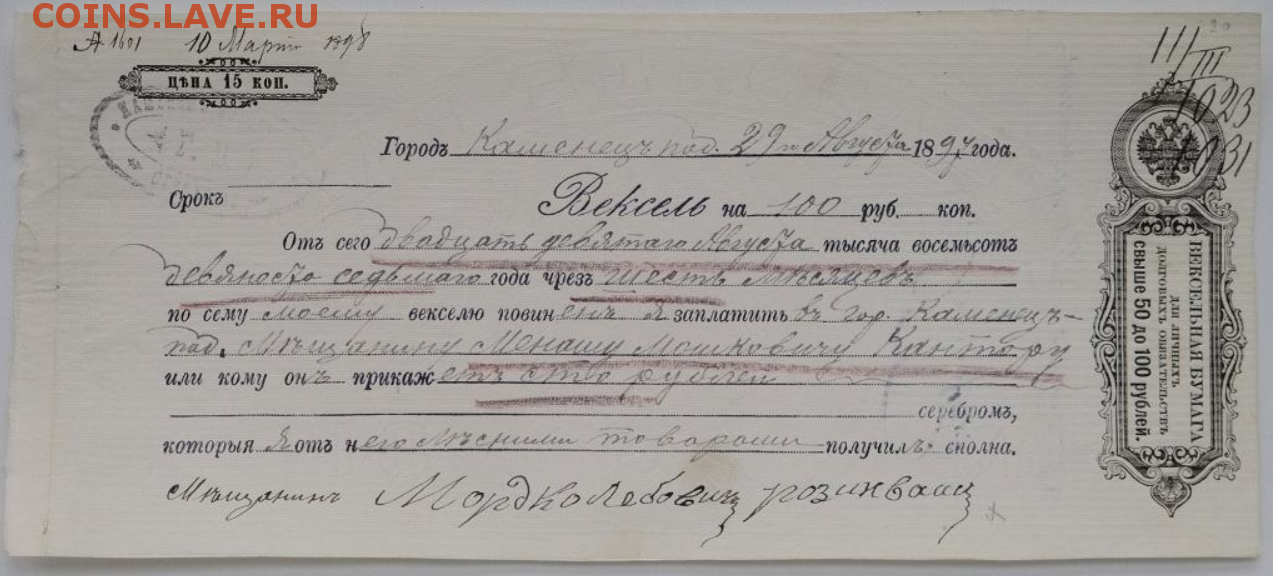 COINS.LAVE.RU
А 1601 10 Марта 1898
ЦѢНА 15 КОП.
111/III
1023
1031
Городъ Каменецъ под. 29 го Августа 1897 года.
Срокъ
Вексель на 100 руб. коп.
Отъ сего двадцать девятаго Августа тысяча восемьсотъ
девяносто седьмаго года чрезъ шесть мѣсяцевъ
по сему моему векселю повиненъ я заплатить въ гор. Каменецъ-
под. Мѣщанину Менашу Мошковичу Кантору
или кому онъ прикажетъ сто рублей
серебромъ,
которыя я отъ него лѣсными товарами получилъ сполна.
Мѣщанинъ Мордко Лебовичъ
ВЕКСЕЛЬНАЯ БУМАГА
ДЛЯ ЛИЧНЫХЪ
ДОЛГОВЫХЪ ОБЯЗАТЕЛЬСТВЪ
СВЫШЕ 50 ДО 100 РУБЛЕЙ.